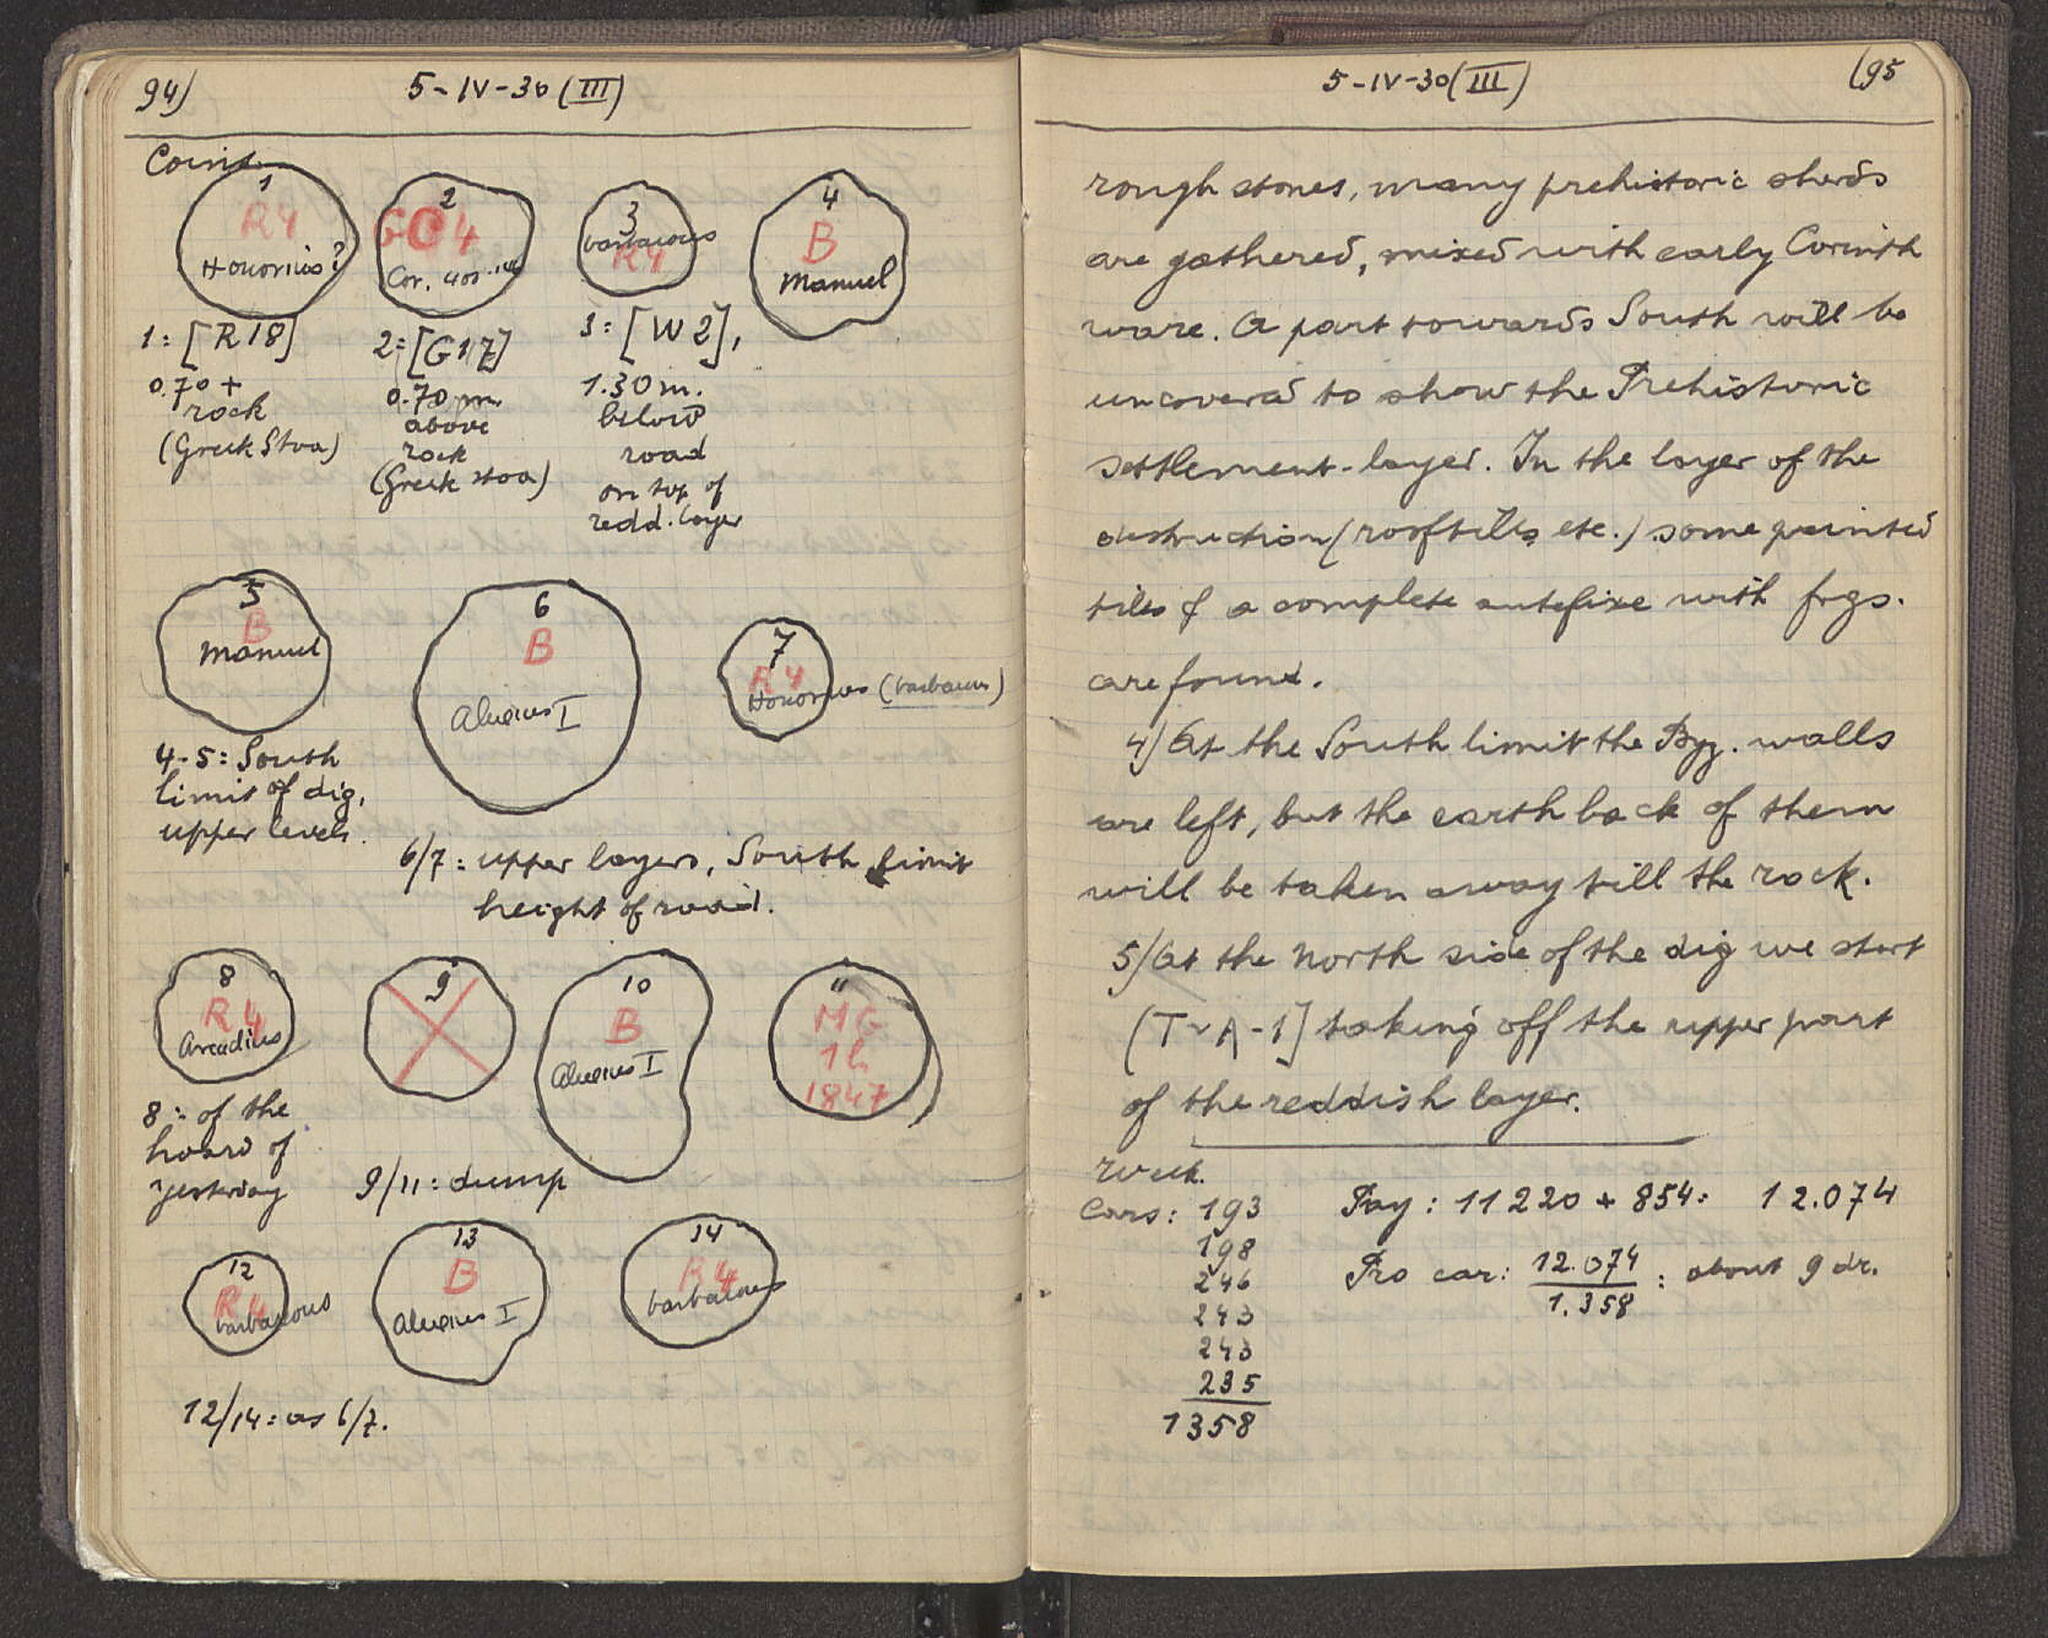 94)
5-IV-30 (III)
Coins.
1
R4
Honorius?
2
GC4
Cor. 400-146
3
barbarous
R4
4
B
Manuel
1: [R18]
0.70 +
rock
(Greek Stoa)
2: [G17]
0.70 m.
above
rock
(Greek stoa)
3: [W2],
1.30 m.
below
road
on top of
redd. layer
5
B
Manuel
6
B
Alexius I
7
R4
Honorius (barbarous)
4-5: South
limit of dig,
upper levels.
6/7: upper layers, South limit
height of road.
8
R4
Arcadius
9
10
B
Alexius I
11
MG
1 l.
1847
8: of the
hoard of
yesterday
9/11: dump
12
R4
barbarous
13
B
Alexius I
14
R4
barbarous
12/14: as 6/7.
5-IV-30 (III)
(95
rough stones, many prehistoric sherds
are gathered, mixed with early Corinth
ware. A part towards South will be
uncovered to show the Prehistoric
settlement-layer. In the layer of the
destruction (rooftiles etc.) some painted
tiles & a complete antefixe with frgs.
are found.
4) At the South limit the Byz. walls
are left, but the earth back of them
will be taken away till the rock.
5) At the North side of the dig we start
[T-A-1] taking off the upper part
of the reddish layer.
Week.
Cars: 193
198
246
243
243
235
1358
Pay: 11220 + 854: 12.074
Pro car: 12.074 / 1.358 : about 9 dr.